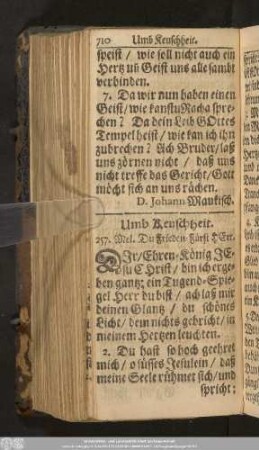 710 Umb Keuschheit.
speist / wie soll nicht auch ein
Hertz uñ Geist uns alle sambt
verbinden.
7. Da wir nun haben einen
Geist / wie kanstu Racha spre-
chen? Da dein Leib GOttes
Tempel heist / wie kan ich ihn
zubrechen? Ach Bruder / laß
uns zörnen nicht / daß uns
nicht treffe das Gericht / Gott
möcht sich an uns rächen.
D. Johann Maukisch.
Umb Keuschheit.
257. Mel. Du Frieden-Fürst HErr.
DIr / Ehren-König JE-
su CHrist / bin ich erge-
ben gantz; ein Tugend-Spie-
gel Herr du bist / ach laß mir
deinen Glantz / du schönes
Licht / dem nichts gebricht / in
meinem Hertzen leuchten.
2. Du hast so hoch geehret
mich / o süsses Jesulein / daß
meine Seele rühmet sich / und
spricht: